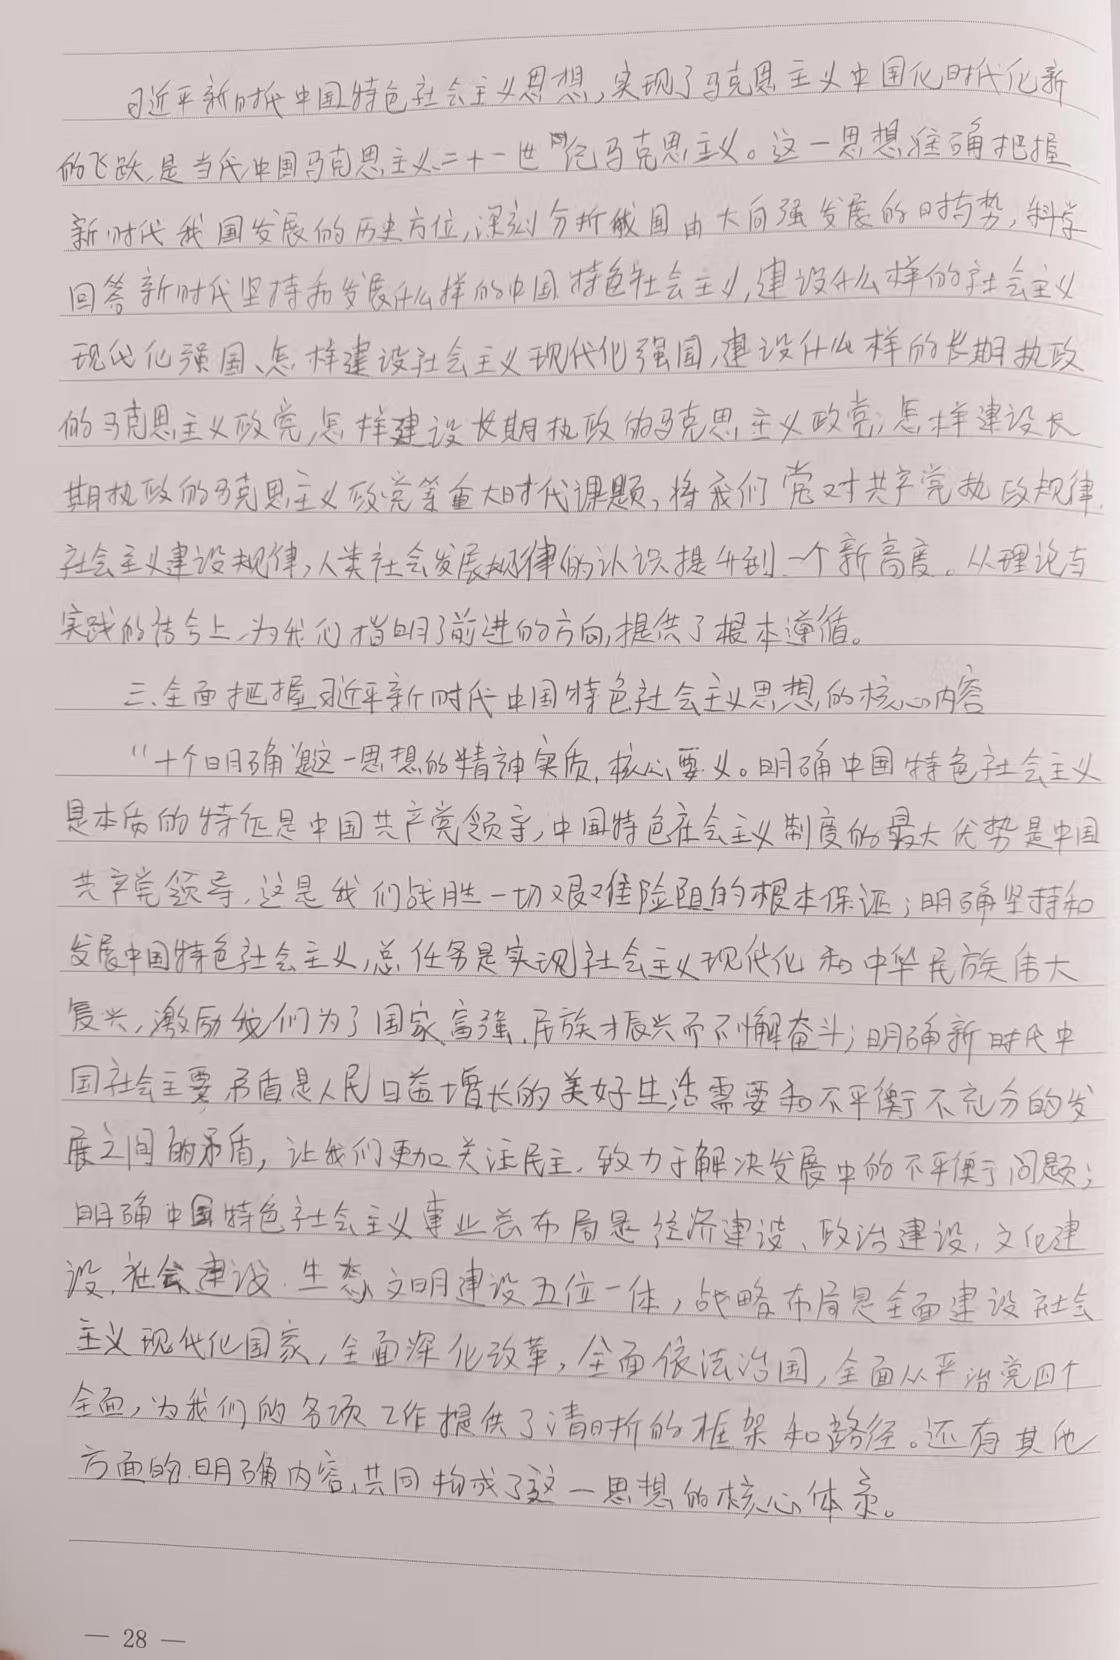 习近平新时代中国特色社会主义思想,实现了马克思主义中国化时代化新
的飞跃,是当代中国马克思主义、二十一世纪马克思主义。这一思想准确把握
新时代我国发展的历史方位,深刻分析我国由大向强发展的时与势,科学
回答新时代坚持和发展什么样的中国特色社会主义,建设什么样的社会主义
现代化强国、怎样建设社会主义现代化强国,建设什么样的长期执政
的马克思主义政党,怎样建设长期执政的马克思主义政党;怎样建设长
期执政的马克思主义政党等重大时代课题,将我们党对共产党执政规律、
社会主义建设规律,人类社会发展规律的认识提升到一个新高度。从理论与
实践的结合上,为我们指明了前进的方向,提供了根本遵循。
三、全面把握习近平新时代中国特色社会主义思想的核心内容
“十个明确是这一思想的精神实质、核心要义。明确中国特色社会主义
是本质的特征是中国共产党领导,中国特色社会主义制度的最大优势是中国
共产党领导,这是我们战胜一切艰难险阻的根本保证;明确坚持和
发展中国特色社会主义,总任务是实现社会主义现代化和中华民族伟大
复兴,激励我们为了国家富强、民族振兴而不懈奋斗;明确新时代中
国社会主要矛盾是人民日益增长的美好生活需要和不平衡不充分的发
展之间的矛盾,让我们更加关注民主,致力于解决发展中的不平衡问题;
明确中国特色社会主义事业总布局是经济建设、政治建设,文化建
设,社会建设、生态文明建设五位一体,战略布局是全面建设社会
主义现代化国家,全面深化改革,全面依法治国,全面从严治党四个
全面,为我们的各项工作提供了清晰的框架和路径。还有其他
方面的明确内容,共同构成了这一思想的核心体系。
— 28 —